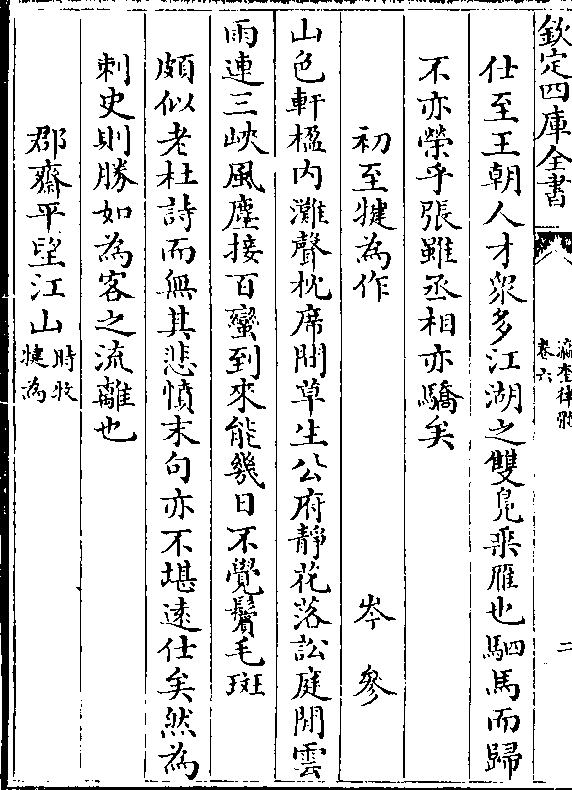 欽定四庫全書
瀛奎律髓
卷六
二
仕至王朝人才衆多江湖之雙鳧乘雁也駟馬而歸
不亦榮乎張雖丞相亦驕矣
初至犍為作 岑參
山色軒楹内灘聲枕席間草生公府靜花落訟庭閒雲
雨連三峽風塵接百蠻到來能幾日不覺鬢毛斑
頗似老杜詩而無其悲憤末句亦不堪逺仕矣然為
刺史則勝如為客之流離也
郡齋平望江山時牧犍為